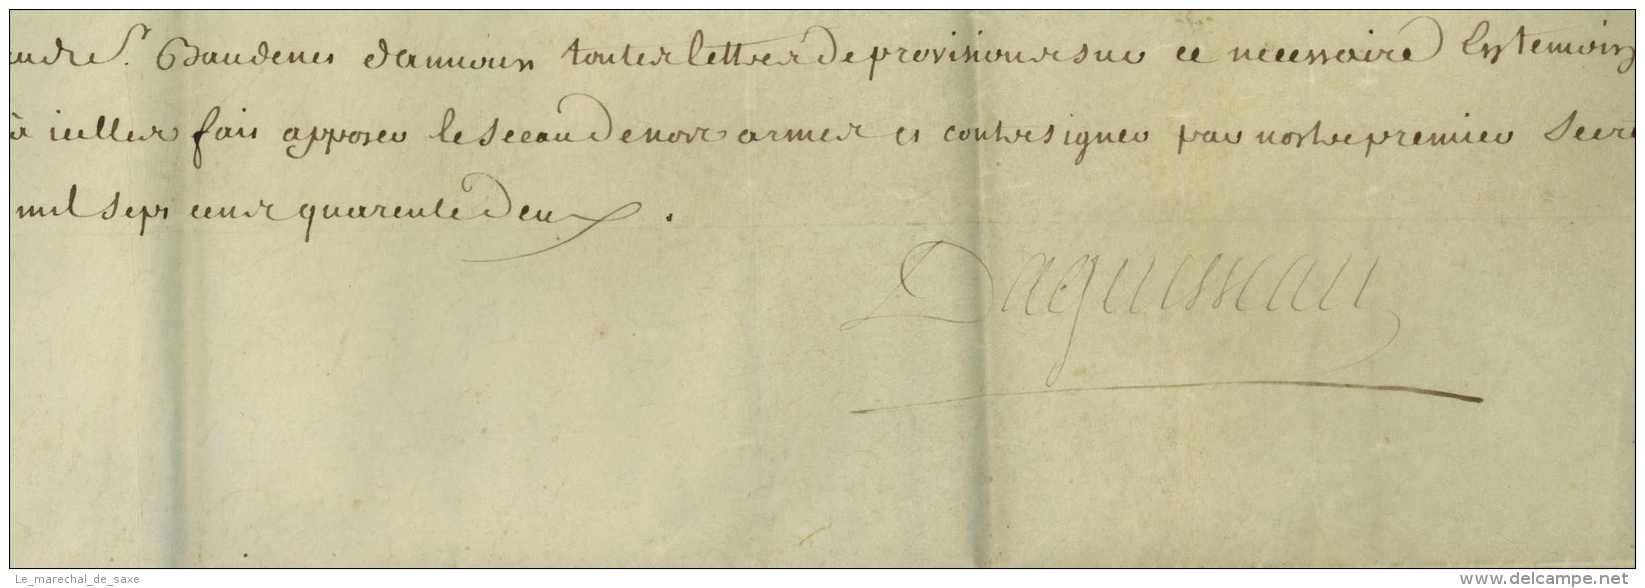 Sr. Baudenes toutes lettres de provisions sur ce necessaire En temoin
à icelles fait apposer le sceau de nos armes et contresigner par nostre premier Secre
mil sept cens quarente deux .
Daguesseau
Le_marechal_de_saxe
www.delcampe.net